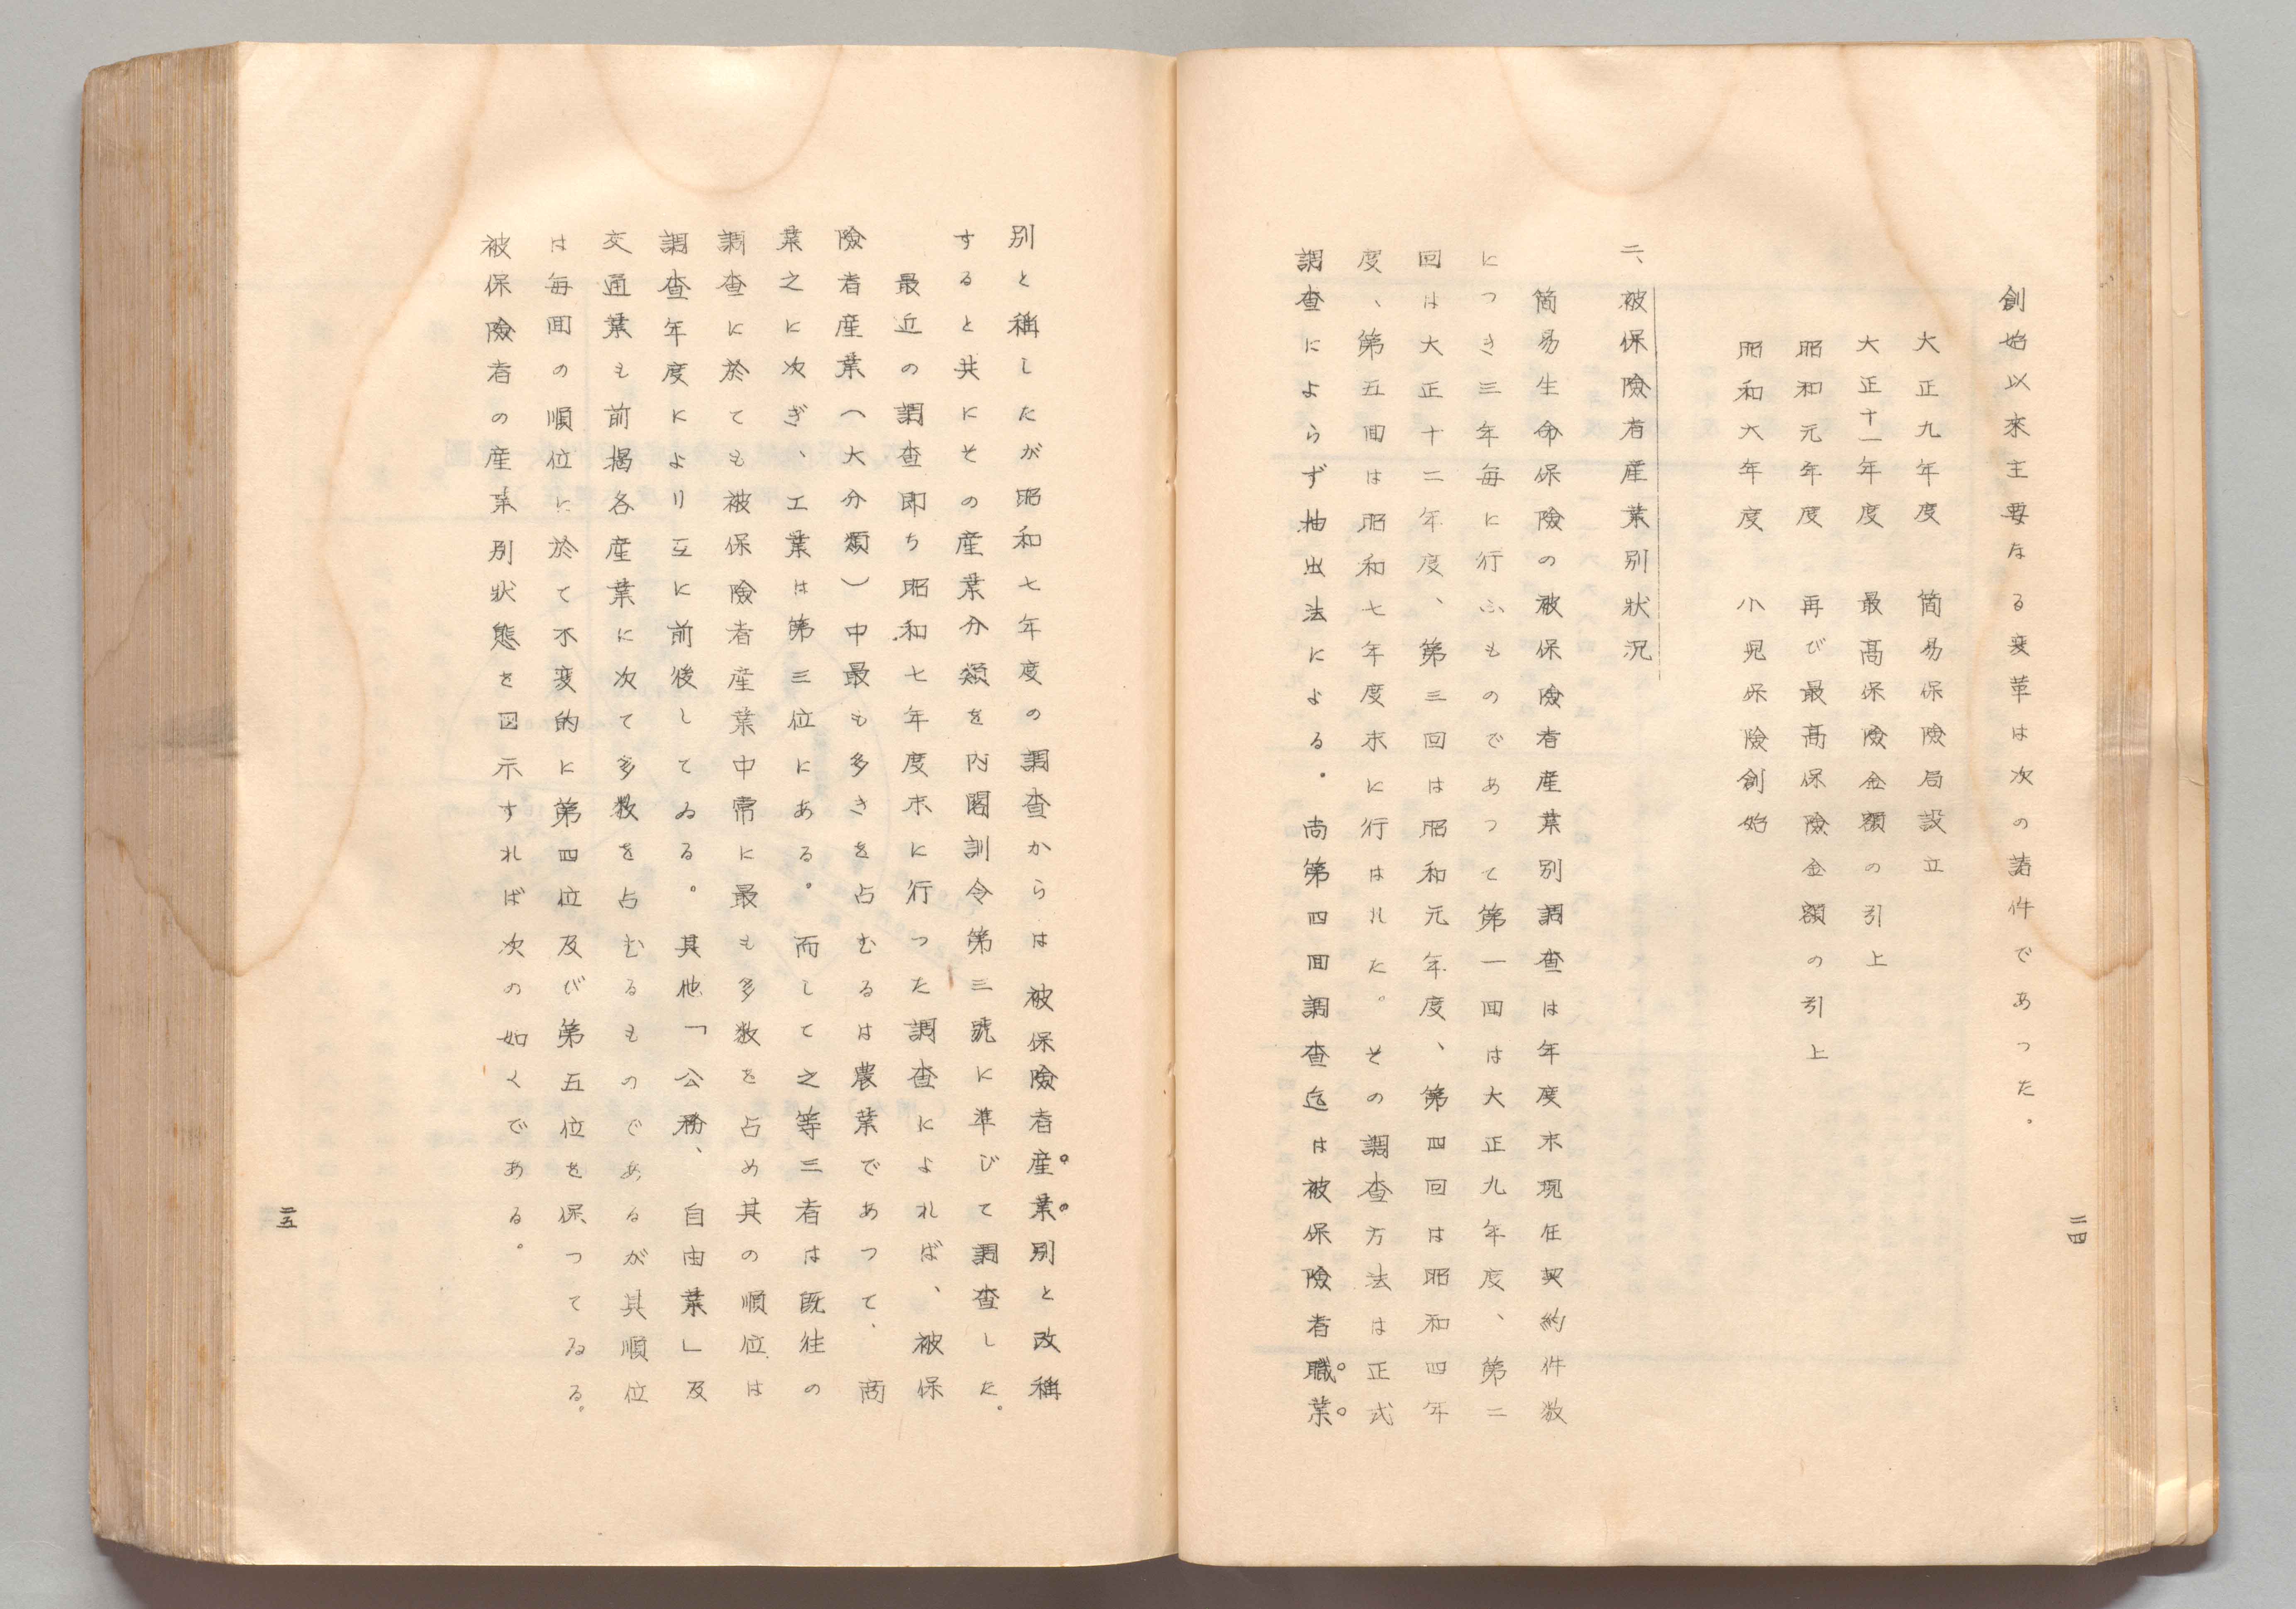 創始以來主要なる変革は次の諸件であった。
大正九年度　簡易保險局設立
大正十一年度　最高保險金額の引上
昭和元年度　再び最高保險金額の引上
昭和六年度　小児保險創始
二、被保險者産業別狀況
簡易生命保險の被保險者産業別調査は年度末現在契約件数
につき三年毎に行ふものであつて第一回は大正九年度、第二
回は大正十二年度、第三回は昭和元年度、第四回は昭和四年
度、第五回は昭和七年度末に行はれた。その調査方法は正式
調査によらず抽出法による。尚第四回調査迄は被保險者職業
二四
別と稱したが昭和七年度の調査からは被保險者産業別と改稱
すると共にその産業分類を内閣訓令第三號に準じて調査した。
最近の調査即ち昭和七年度末に行つた調査によれば、被保
險者産業（大分類）中最も多きを占むるは農業であつて、商
業之に次ぎ、工業は第三位にある。而して之等三者は既往の
調査に於ても被保險者産業中常に最も多数を占め其の順位は
調査年度により互に前後してゐる。其他「公務、自由業」及
交通業も前掲各産業に次て多数を占むるものであるが其順位
は毎回の順位に於て不変的に第四位及び第五位を保つてゐる。
被保險者の産業別狀態を図示すれば次の如くである。
二五